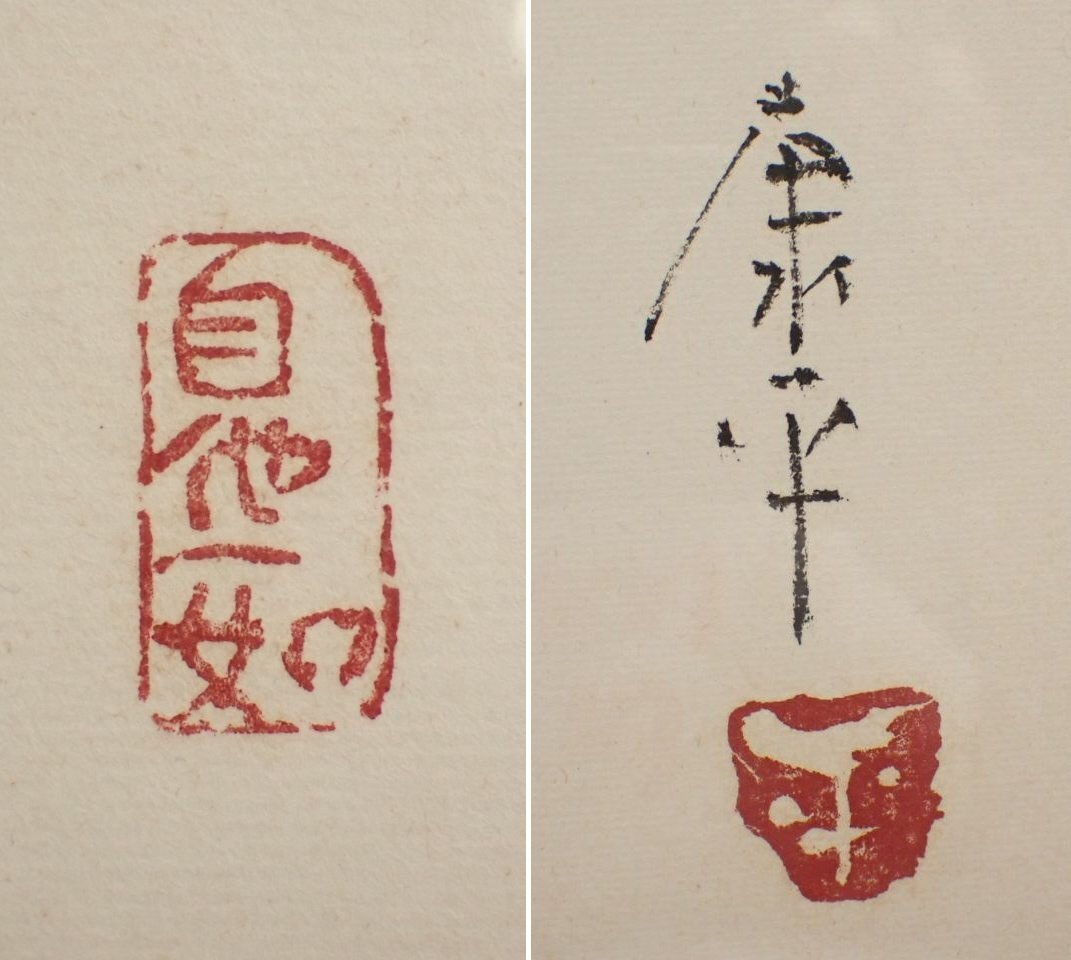 自他一如
康平
平